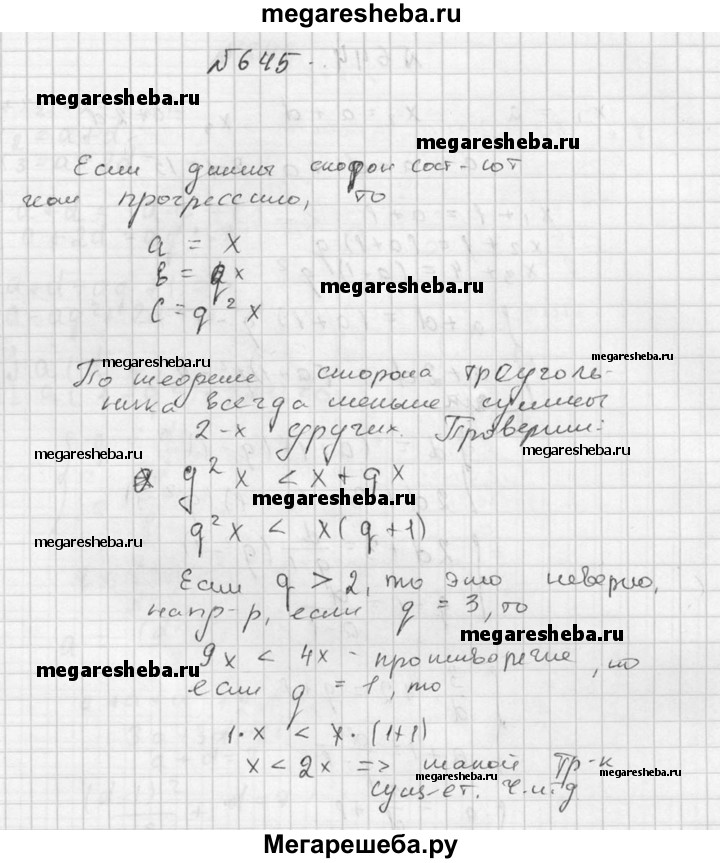 megaresheba.ru
№645.
megaresheba.ru
megaresheba.ru
Если длины сторон сост-ют
геом прогрессию, то
a = x
b = qx
megaresheba.ru
c = q² x
megaresheba.ru
megaresheba.ru
По теореме сторона треуголь-
ника всегда меньше суммы
2-х других. Проверим:
megaresheba.ru
megaresheba.ru
q² x < x + qx
megaresheba.ru
q² x < x (q+1)
megaresheba.ru
Если q > 2, то это неверно,
напр-р, если q = 3, то
megaresheba.ru
9x < 4x - противоречие, но
megaresheba.ru
если q = 1, то
1·x < x·(1+1)
x < 2x => такой тр-к
megaresheba.ru
megaresheba.ru
megaresheba.ru
сущ-ет. ч.т.д
Мегарешеба.ру